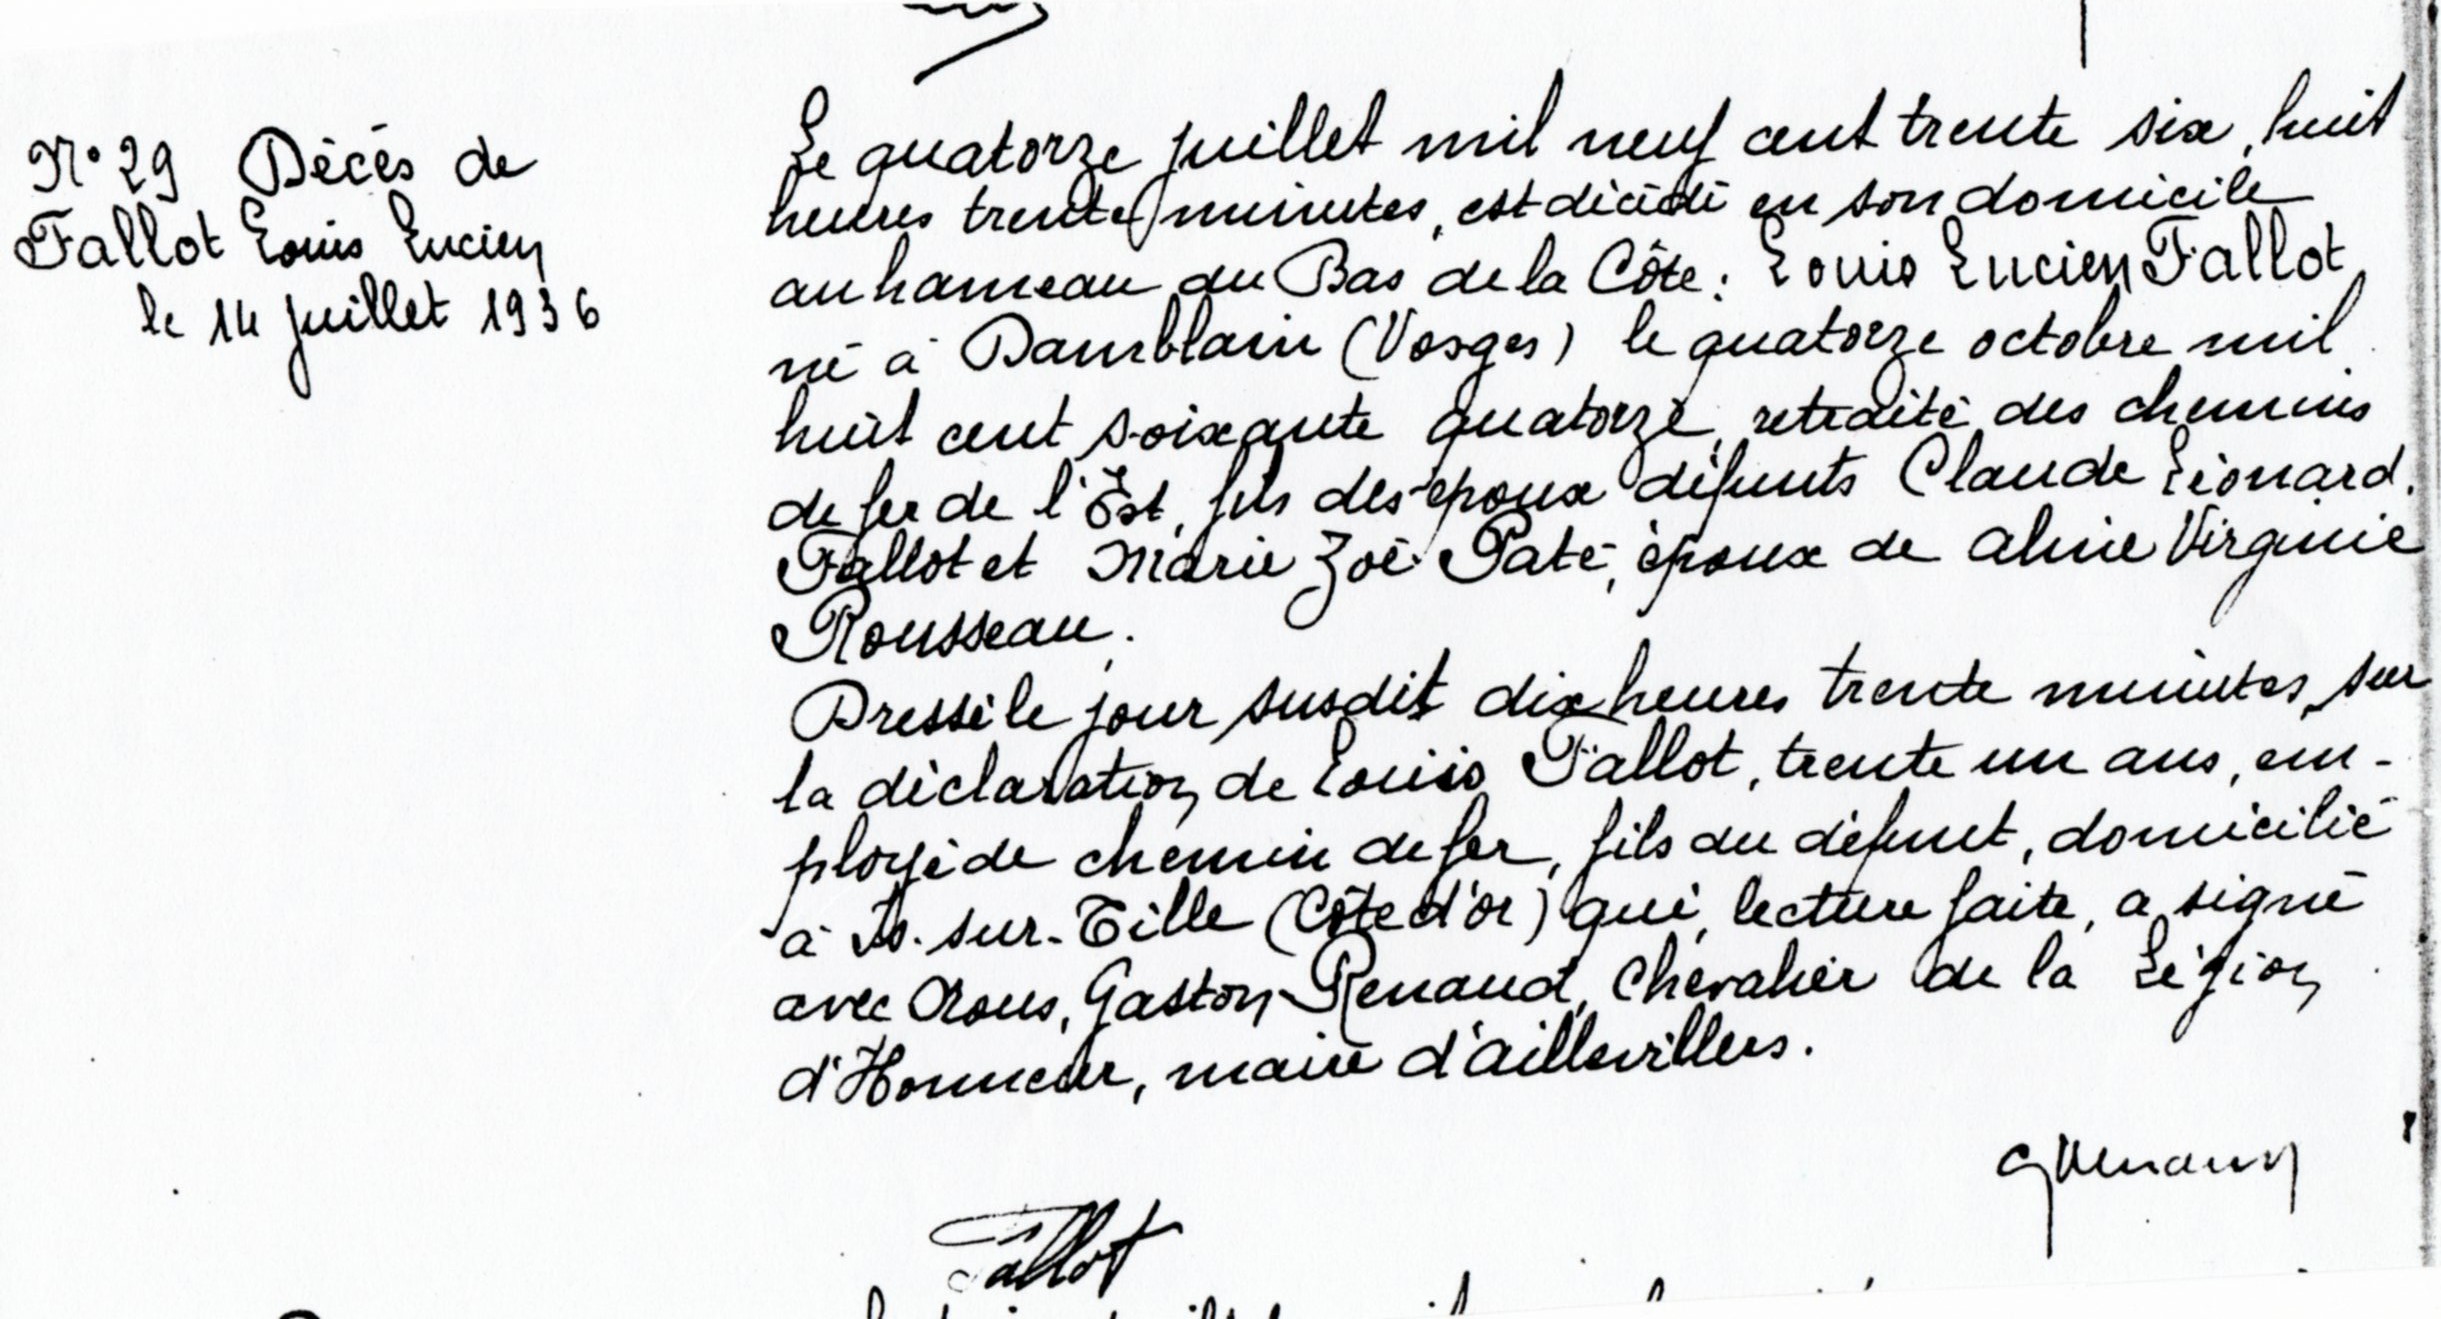 N° 29 Décès de
Fallot Louis Lucien
le 14 juillet 1936
Le quatorze juillet mil neuf cent trente six, huit
heures trente minutes, est décédé en son domicile
au hameau du Bas de la Côte : Louis Lucien Fallot,
né à Damblain (Vosges) le quatorze octobre mil
huit cent soixante quatorze, retraité des chemins
de fer de l'Est, fils des époux défunts Claude Léonard
Fallot et Marie Zoé Paté, époux de Aline Virginie
Rousseau.
Dressé le jour susdit dix heures trente minutes, sur
la déclaration de Louis Fallot, trente un ans, em-
ployé de chemin de fer, fils du défunt, domicilié
à Is-sur-Tille (Côte d'or) qui, lecture faite, a signé
avec Nous, Gaston Renaud, Chevalier de la Légion
d'Honneur, maire d'aillevillers.
GRenaud
Fallot